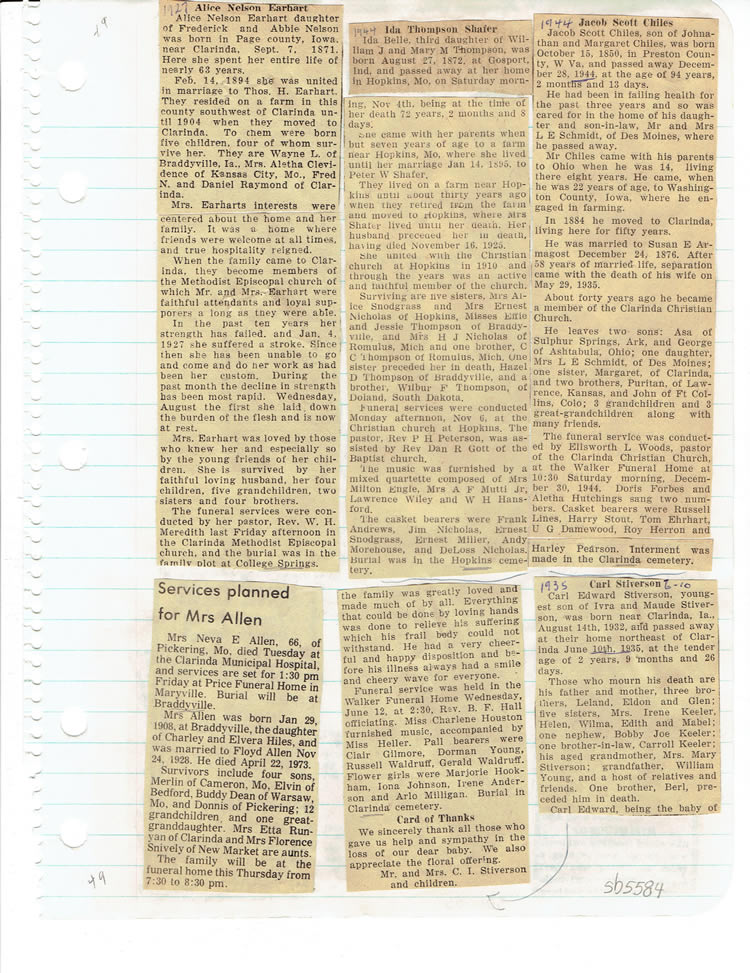 49
1927 Alice Nelson Earhart
Alice Nelson Earhart daughter
of Frederick and Abbie Nelson
was born in Page county, Iowa,
near Clarinda, Sept. 7, 1871.
Here she spent her entire life of
nearly 63 years.
Feb. 14, 1894 she was united
in marriage to Thos. H. Earhart.
They resided on a farm in this
county southwest of Clarinda un-
til 1904 when they moved to
Clarinda. To them were born
five children, four of whom sur-
vive her. They are Wayne L. of
Braddyville, Ia., Mrs. Aletha Clevi-
dence of Kansas City, Mo., Fred
N. and Daniel Raymond of Clar-
inda.
Mrs. Earharts interests were
centered about the home and her
family. It was a home where
friends were welcome at all times,
and true hospitality reigned.
When the family came to Clar-
inda, they become members of
the Methodist Episcopal church of
which Mr. and Mrs. Earhart were
faithful attendants and loyal sup-
porers a long as they were able.
In the past ten years her
strength has failed, and Jan. 4,
1927 she suffered a stroke. Since
then she has been unable to go
and come and do her work as had
been her custom. During the
past month the decline in strength
has been most rapid. Wednesday,
August the first she laid down
the burden of the flesh and is now
at rest.
Mrs. Earhart was loved by those
who knew her and especially so
by the young friends of her chil-
dren. She is survived by her
faithful loving husband, her four
children, five grandchildren, two
sisters and four brothers.
The funeral services were con-
ducted by her pastor, Rev. W. H.
Meredith last Friday afternoon in
the Clarinda Methodist Episcopal
church, and the burial was in the
family plot at College Springs.
1944 Ida Thompson Shafer
Ida Belle, third daughter of Wil-
liam J and Mary M Thompson, was
born August 27, 1872, at Gosport,
Ind, and passed away at her home
in Hopkins, Mo, on Saturday morn-
ing, Nov 4th, being at the time of
her death 72 years, 2 months and 8
days.
She came with her parents when
but seven years of age to a farm
near Hopkins, Mo, where she lived
until her marriage Jan 14, 1895, to
Peter W Shafer.
They lived on a farm near Hop-
kins until about thirty years ago
when they retired from the farm
and moved to Hopkins, where Mrs
Shafer lived until her death. Her
husband preceded her in death,
having died November 16, 1925.
She united with the Christian
church at Hopkins in 1910 and
through the years was an active
and faithful member of the church.
Surviving are five sisters, Mrs Al-
ice Snodgrass and Mrs Ernest
Nicholas of Hopkins, Misses Effie
and Jessie Thompson of Braddy-
ville, and Mrs H J Nicholas of
Romulus, Mich and one brother, C
C Thompson of Romulus, Mich. One
sister preceded her in death, Hazel
D Thompson of Braddyville, and a
brother, Wilbur F Thompson, of
Doland, South Dakota.
Funeral services were conducted
Monday afternon, Nov 6, at the
Christian church at Hopkins. The
pastor, Rev P H Peterson, was as-
sisted by Rev Dan R Gott of the
Baptist church.
The music was furnished by a
mixed quartette composed of Mrs
Milton Engle, Mrs A F Mutti Jr,
Lawrence Wiley and W H Hans-
ford.
The casket bearers were Frank
Andrews, Jim Nicholas, Ernest
Snodgrass, Ernest Miller, Andy
Morehouse, and DeLoss Nicholas.
Burial was in the Hopkins ceme-
tery.
1944 Jacob Scott Chiles
Jacob Scott Chiles, son of Johna-
than and Margaret Chiles, was born
October 15, 1850, in Preston Coun-
ty, W Va, and passed away Decem-
ber 28, 1944, at the age of 94 years,
2 months and 13 days.
He had been in failing health for
the past three years and so was
cared for in the home of his daugh-
ter and son-in-law, Mr and Mrs
L E Schmidt, of Des Moines, where
he passed away.
Mr Chiles came with his parents
to Ohio when he was 14, living
there eight years. He came, when
he was 22 years of age, to Washing-
ton County, Iowa, where he en-
gaged in farming.
In 1884 he moved to Clarinda,
living here for fifty years.
He was married to Susan E Ar-
magost December 24, 1876. After
58 years of married life, separation
came with the death of his wife on
May 29, 1935.
About forty years ago he became
a member of the Clarinda Christian
Church.
He leaves two sons: Asa of
Sulphur Springs, Ark, and George
of Ashtabula, Ohio; one daughter,
Mrs L E Schmidt, of Des Moines;
one sister, Margaret, of Clarinda,
and two brothers, Puritan, of Law-
rence, Kansas, and John of Ft Col-
lins, Colo; 3 grandchildren and 3
great-grandchildren along with
many friends.
The funeral service was conduct-
ed by Ellsworth L Woods, pastor
of the Clarinda Christian Church,
at the Walker Funeral Home at
10:30 Saturday morning, Decem-
ber 30, 1944. Doris Forbes and
Aletha Hutchings sang two num-
bers. Casket bearers were Russell
Lines, Harry Stout, Tom Ehrhart,
U G Damewood, Roy Herron and
Harley Pearson. Interment was
made in the Clarinda cemetery.
Services planned
for Mrs Allen
Mrs Neva E Allen, 66, of
Pickering, Mo, died Tuesday at
the Clarinda Municipal Hospital,
and services are set for 1:30 pm
Friday at Price Funeral Home in
Maryville. Burial will be at
Braddyville.
Mrs Allen was born Jan 29,
1908, at Braddyville, the daughter
of Charley and Elvera Hiles, and
was married to Floyd Allen Nov
24, 1928. He died April 22, 1973.
Survivors include four sons,
Merlin of Cameron, Mo, Elvin of
Bedford, Buddy Dean of Warsaw,
Mo, and Donnis of Pickering; 12
grandchildren and one great-
granddaughter. Mrs Etta Run-
yan of Clarinda and Mrs Florence
Snively of New Market are aunts.
The family will be at the
funeral home this Thursday from
7:30 to 8:30 pm.
1935 Carl Stiverson 6-10
Carl Edward Stiverson, young-
est son of Ivra and Maude Stiver-
son, was born near Clarinda, Ia.,
August 14th, 1932, and passed away
at their home northeast of Clar-
inda June 10th, 1935, at the tender
age of 2 years, 9 months and 26
days.
Those who mourn his death are
his father and mother, three bro-
thers, Leland, Eldon and Glen;
five sisters, Mrs. Irene Keeler,
Helen, Wilma, Edith and Mabel;
one nephew, Bobby Joe Keeler;
one brother-in-law, Carroll Keeler;
his aged grandmother, Mrs. Mary
Stiverson; grandfather, William
Young, and a host of relatives and
friends. One brother, Berl, pre-
ceded him in death.
Carl Edward, being the baby of
the family was greatly loved and
made much of by all. Everything
that could be done by loving hands
was done to relieve his suffering
which his frail body could not
withstand. He had a very cheer-
ful and happy disposition and be-
fore his illness always had a smile
and cheery wave for everyone.
Funeral service was held in the
Walker Funeral Home Wednesday,
June 12, at 2:30, Rev. B. F. Hall
officiating. Miss Charlene Houston
furnished music, accompanied by
Miss Heller. Pall bearers were
Clair Gilmore, Dorman Young,
Russell Waldruff, Gerald Waldruff.
Flower girls were Marjorie Hook-
ham, Iona Johnson, Irene Ander-
son and Arlo Milligan. Burial in
Clarinda cemetery.
Card of Thanks
We sincerely thank all those who
gave us help and sympathy in the
loss of our dear baby. We also
appreciate the floral offering.
Mr. and Mrs. C. I. Stiverson
and children.
49
sb5584